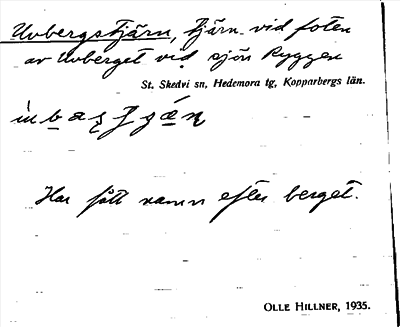 Uvbergstjärn, tjärn vid foten
av Uvberget vid sjön Ryggen
St. Skedvi sn, Hedemora tg, Kopparbergs län.
Har fått namn efter berget.
OLLE HILLNER, 1935.